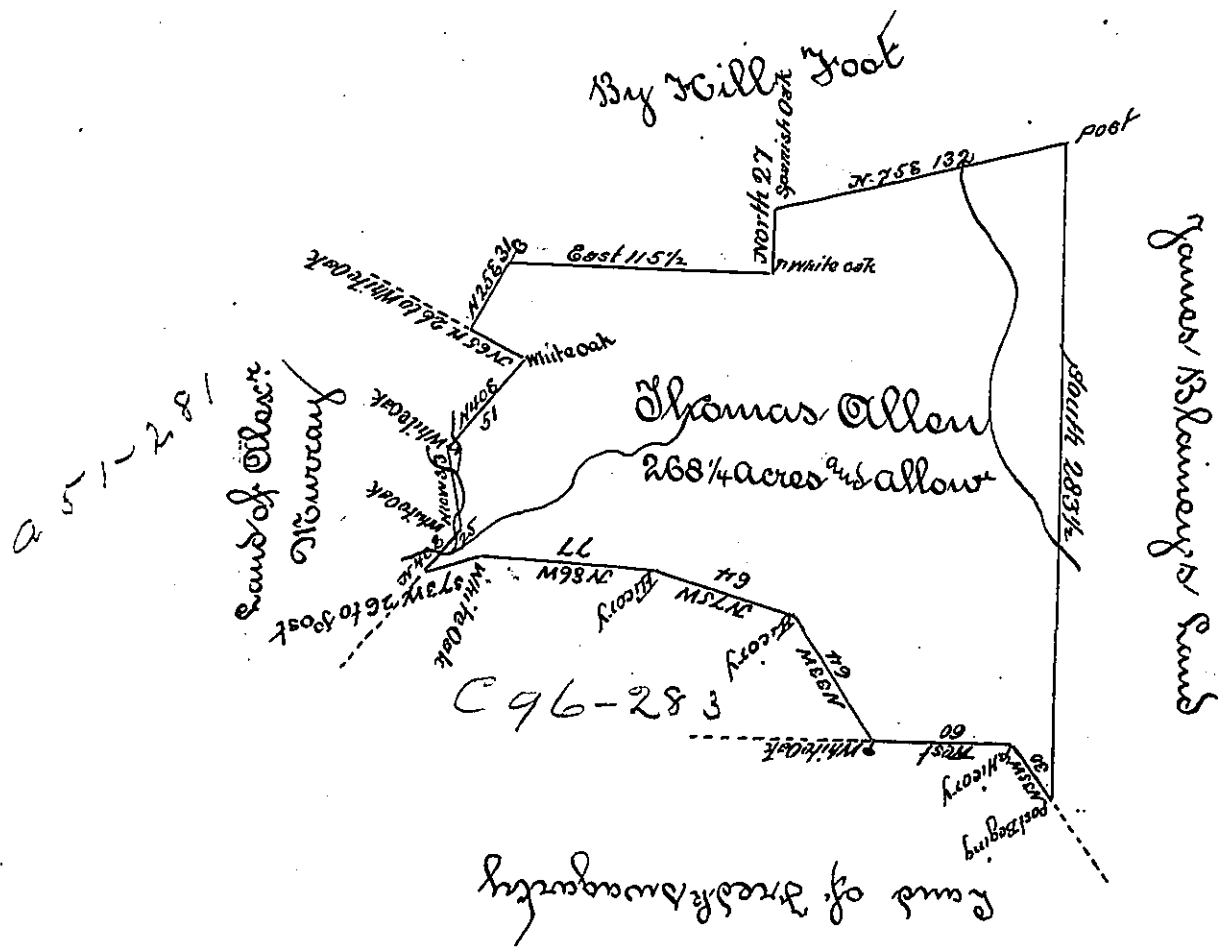 By Hills Foot
Spanish Oak
North 27
N. 75E 132
post
East 115½
White oak
N25E 31
N65W 26 to White Oak
White oak
N 40
51
White Oak
White Oak
25
Land of Alexr.
Murray
a 51-281
Thomas Allen
268¼ acres and allowe
South 283½
James Blainey's Land
S73W 26 to Post
White Oak
N86W
77
Hicory
N75W
64
Hicory
N33W
64
White Oak
West
60
a Hicory
N35W
30
Post Beging
C96-283
Land of Fredk Swagarty